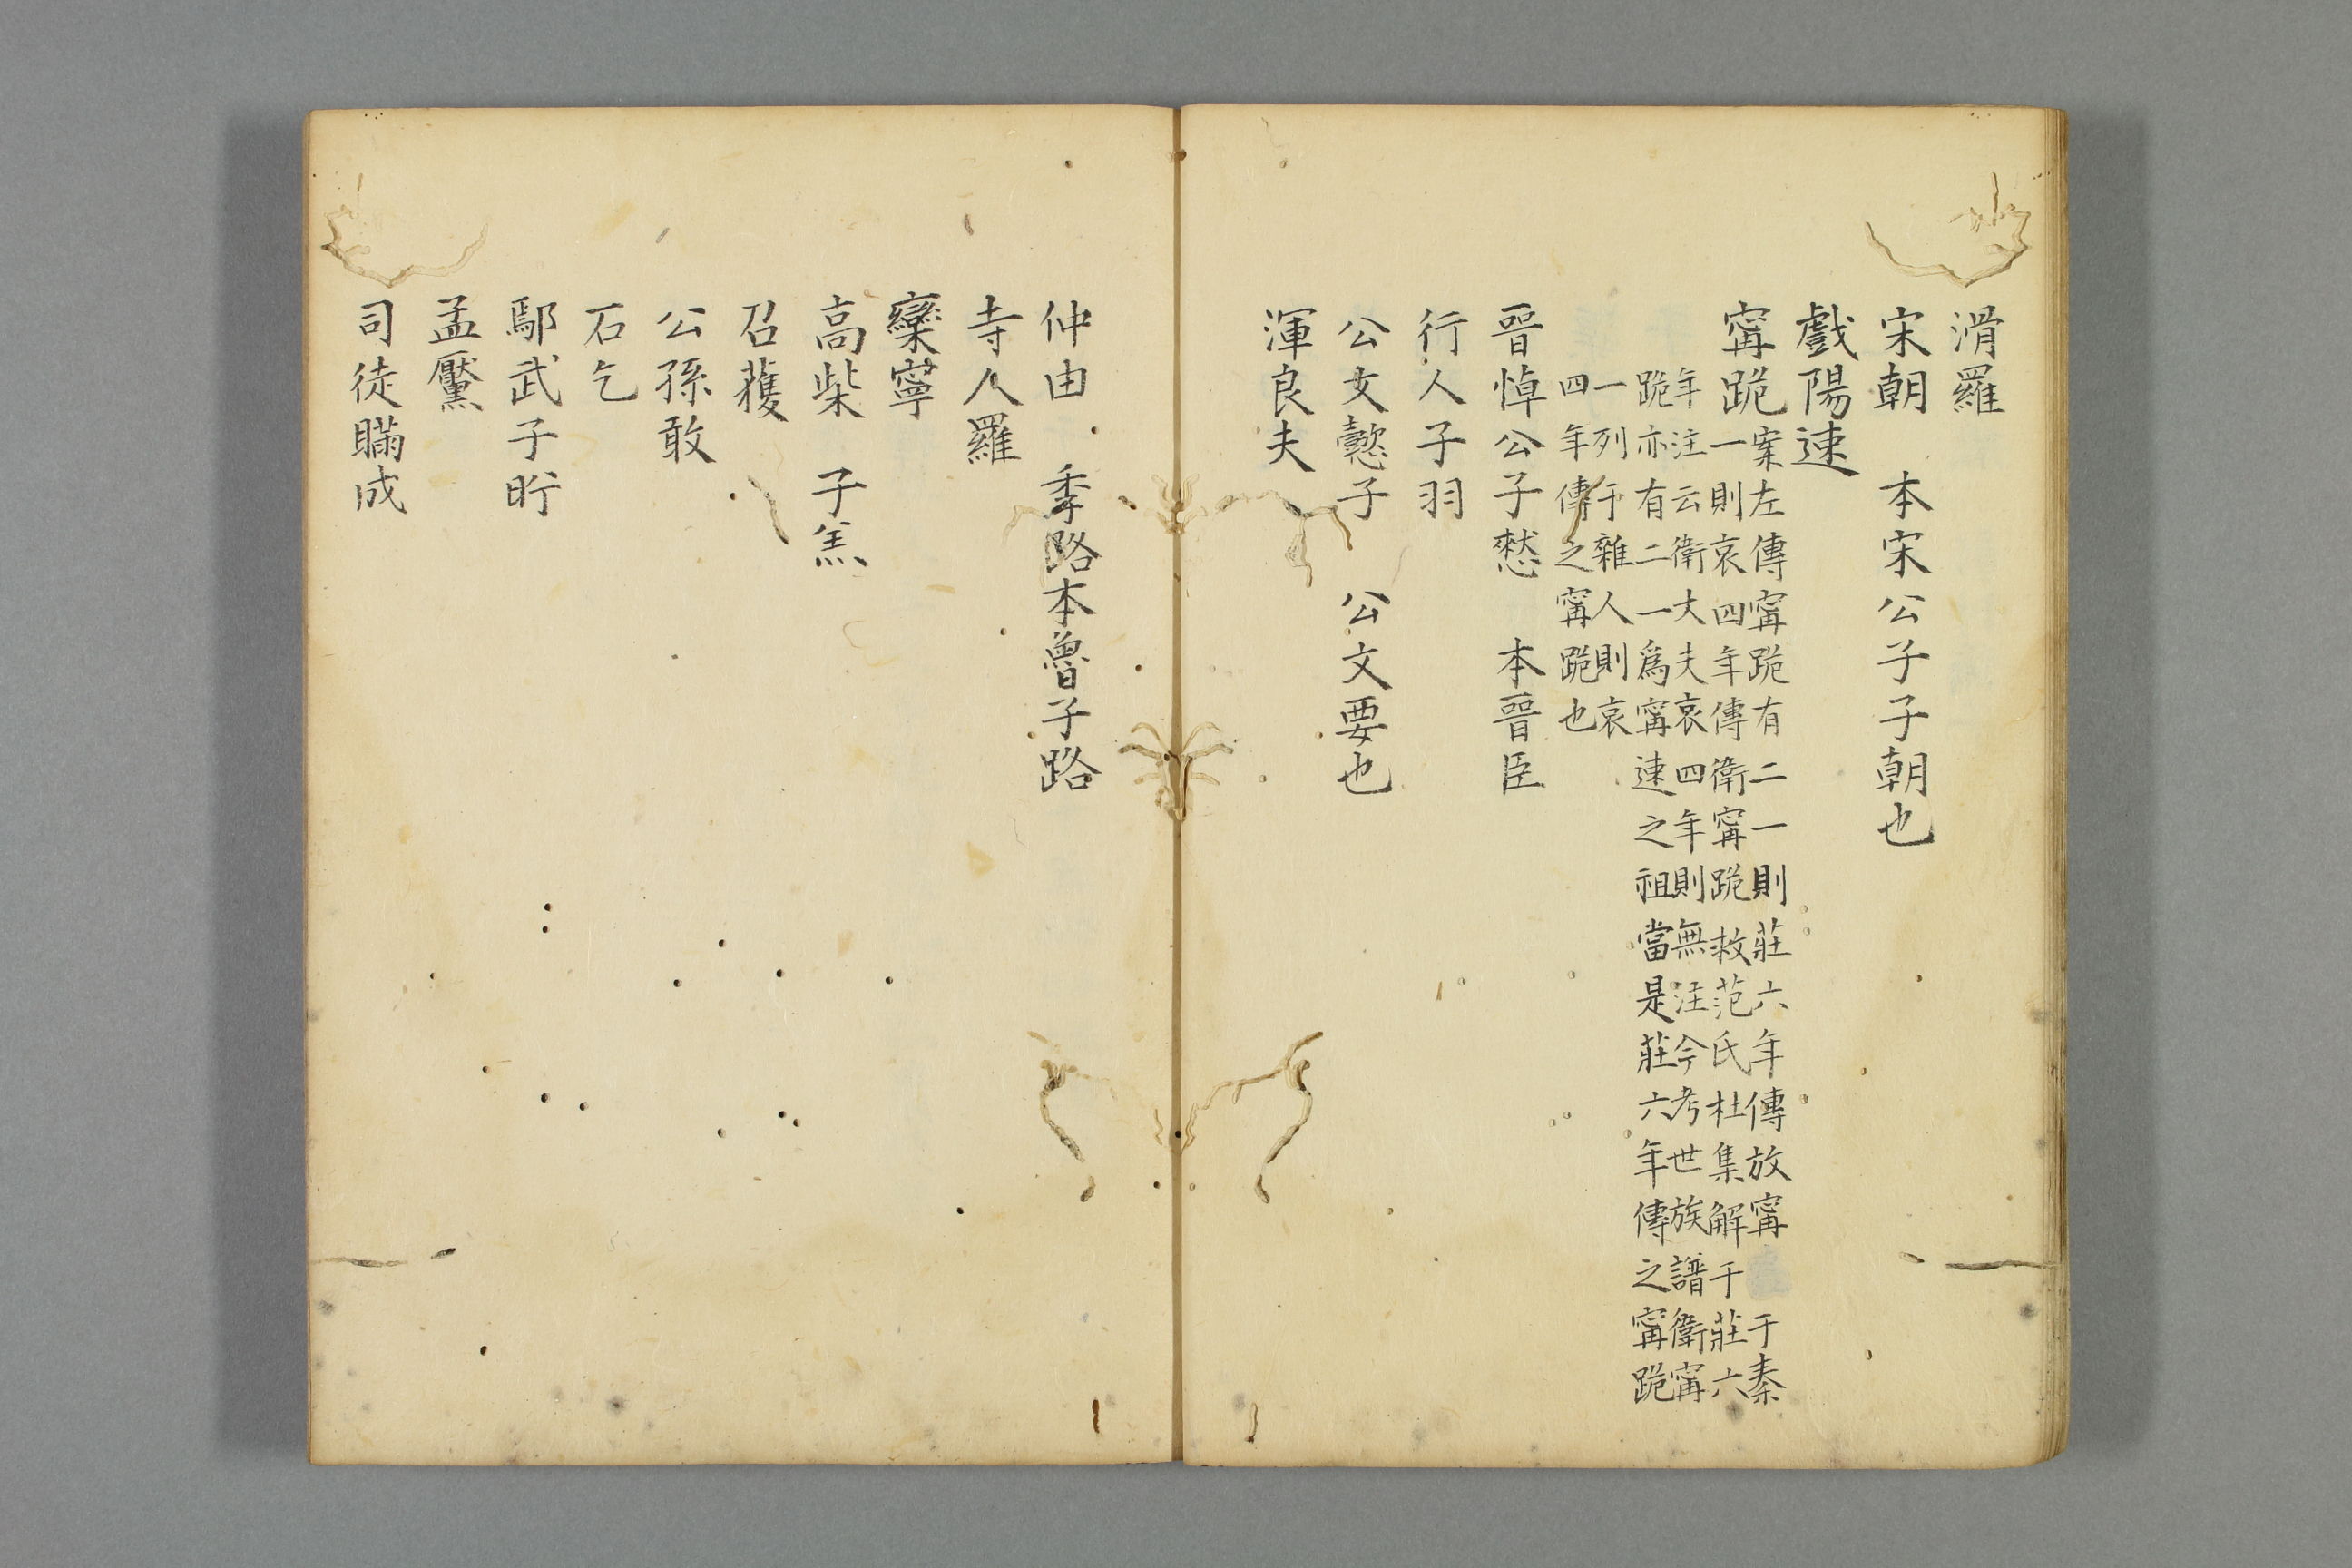 滑羅
宋朝　本宋公子子朝也
戲陽速
甯跪
案左傳甯跪有二一則莊六年傳放甯　于秦
一則哀四年傳衛甯跪救范氏杜集解于莊六
年注云衛大夫哀四年則無注今考世族譜衛甯
跪亦有二一爲甯速之祖當是莊六年傳之甯跪
一列于雜人則哀
四年傳之甯跪也
晉悼公子憖　本晉臣
行人子羽
公文懿子　公文要也
渾良夫
仲由　季路本魯子路
寺人羅
欒寧
高柴　子羔
召獲
公孫敢
石乞
鄢武子肸
孟黶
司徒瞞成